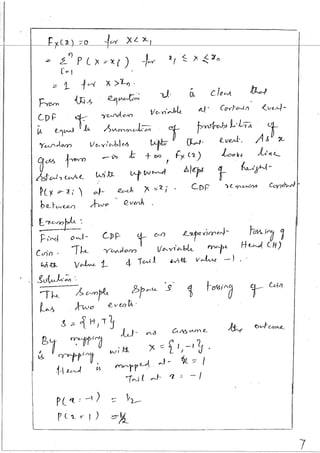 Fx(x) = 0 for x < x1
= Σ P(x = xi) for x1 ≤ x ≤ xn
i=1
= 1 for x > xn.
From this equation it is clear that
CDF of random variable at certain event
is equal to summation of probability of
random variables upto that event. As x
goes from -∞ to +∞, Fx(x) looks like
staircase with upward steps of height
P(x = xi) at each x = xi. CDF remains constant
between two events.
Example:
Find out CDF of an experiment tossing of
Coin. The random variable maps Head (H)
with value 1 & Tail with value -1.
Solution:
The Sample Space 'S' of tossing of coin
has two events
S = {H, T}
By mapping let us assume the outcome
is mapping with X = {1, -1}.
Head is mapped at x = 1
Tail at x = -1
P(x = -1) = 1/2
P(x = 1) = 1/2
7